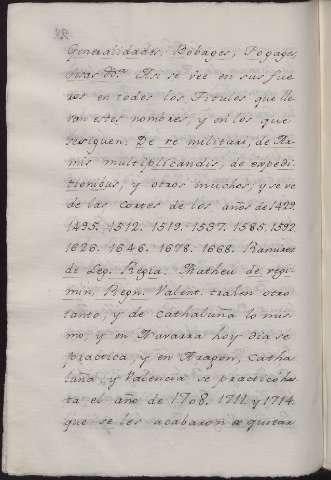 Generalidades, Bobages, Fogages,
Sisas &c.ª Asi se vee en sus fue
ros en todos los Titulos que lle
van estos nombres, y en los que
se siguen: De re militari, de Ar
mis multiplicandis, de expedi
tionibus, y otros muchos, y se ve
de las cortes de los años de 1429.
1495. 1512. 1519. 1537. 1585. 1592
1626. 1646. 1678. 1668. Ramirez
de Leg. Regia. Matheu de regi-
min. Regn. Valent. tralen otro
tanto, y de cathaluña lo mis
mo, y en Navarra hoy dia se
practica, y en Aragon, Catha
luña, y Valencia se practicó has
ta el año de 1708. 1711. y 1714
que se les acabaron de quitar